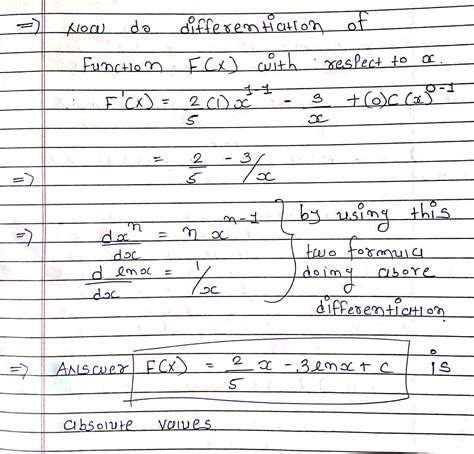 ⇒ Now do differentiation of
Function F(x) with respect to x.
∴ F'(x) = 2/5 (1) x^1-1 - 3/x + (0)C(x)^0-1
⇒ = 2/5 - 3/x
⇒ dx^n/dx = n x^n-1 } by using this
d lnx/dx = 1/x two formula
doing above
differentiation
⇒ Answer F(x) = 2/5 x - 3lnx + c is
absolute values